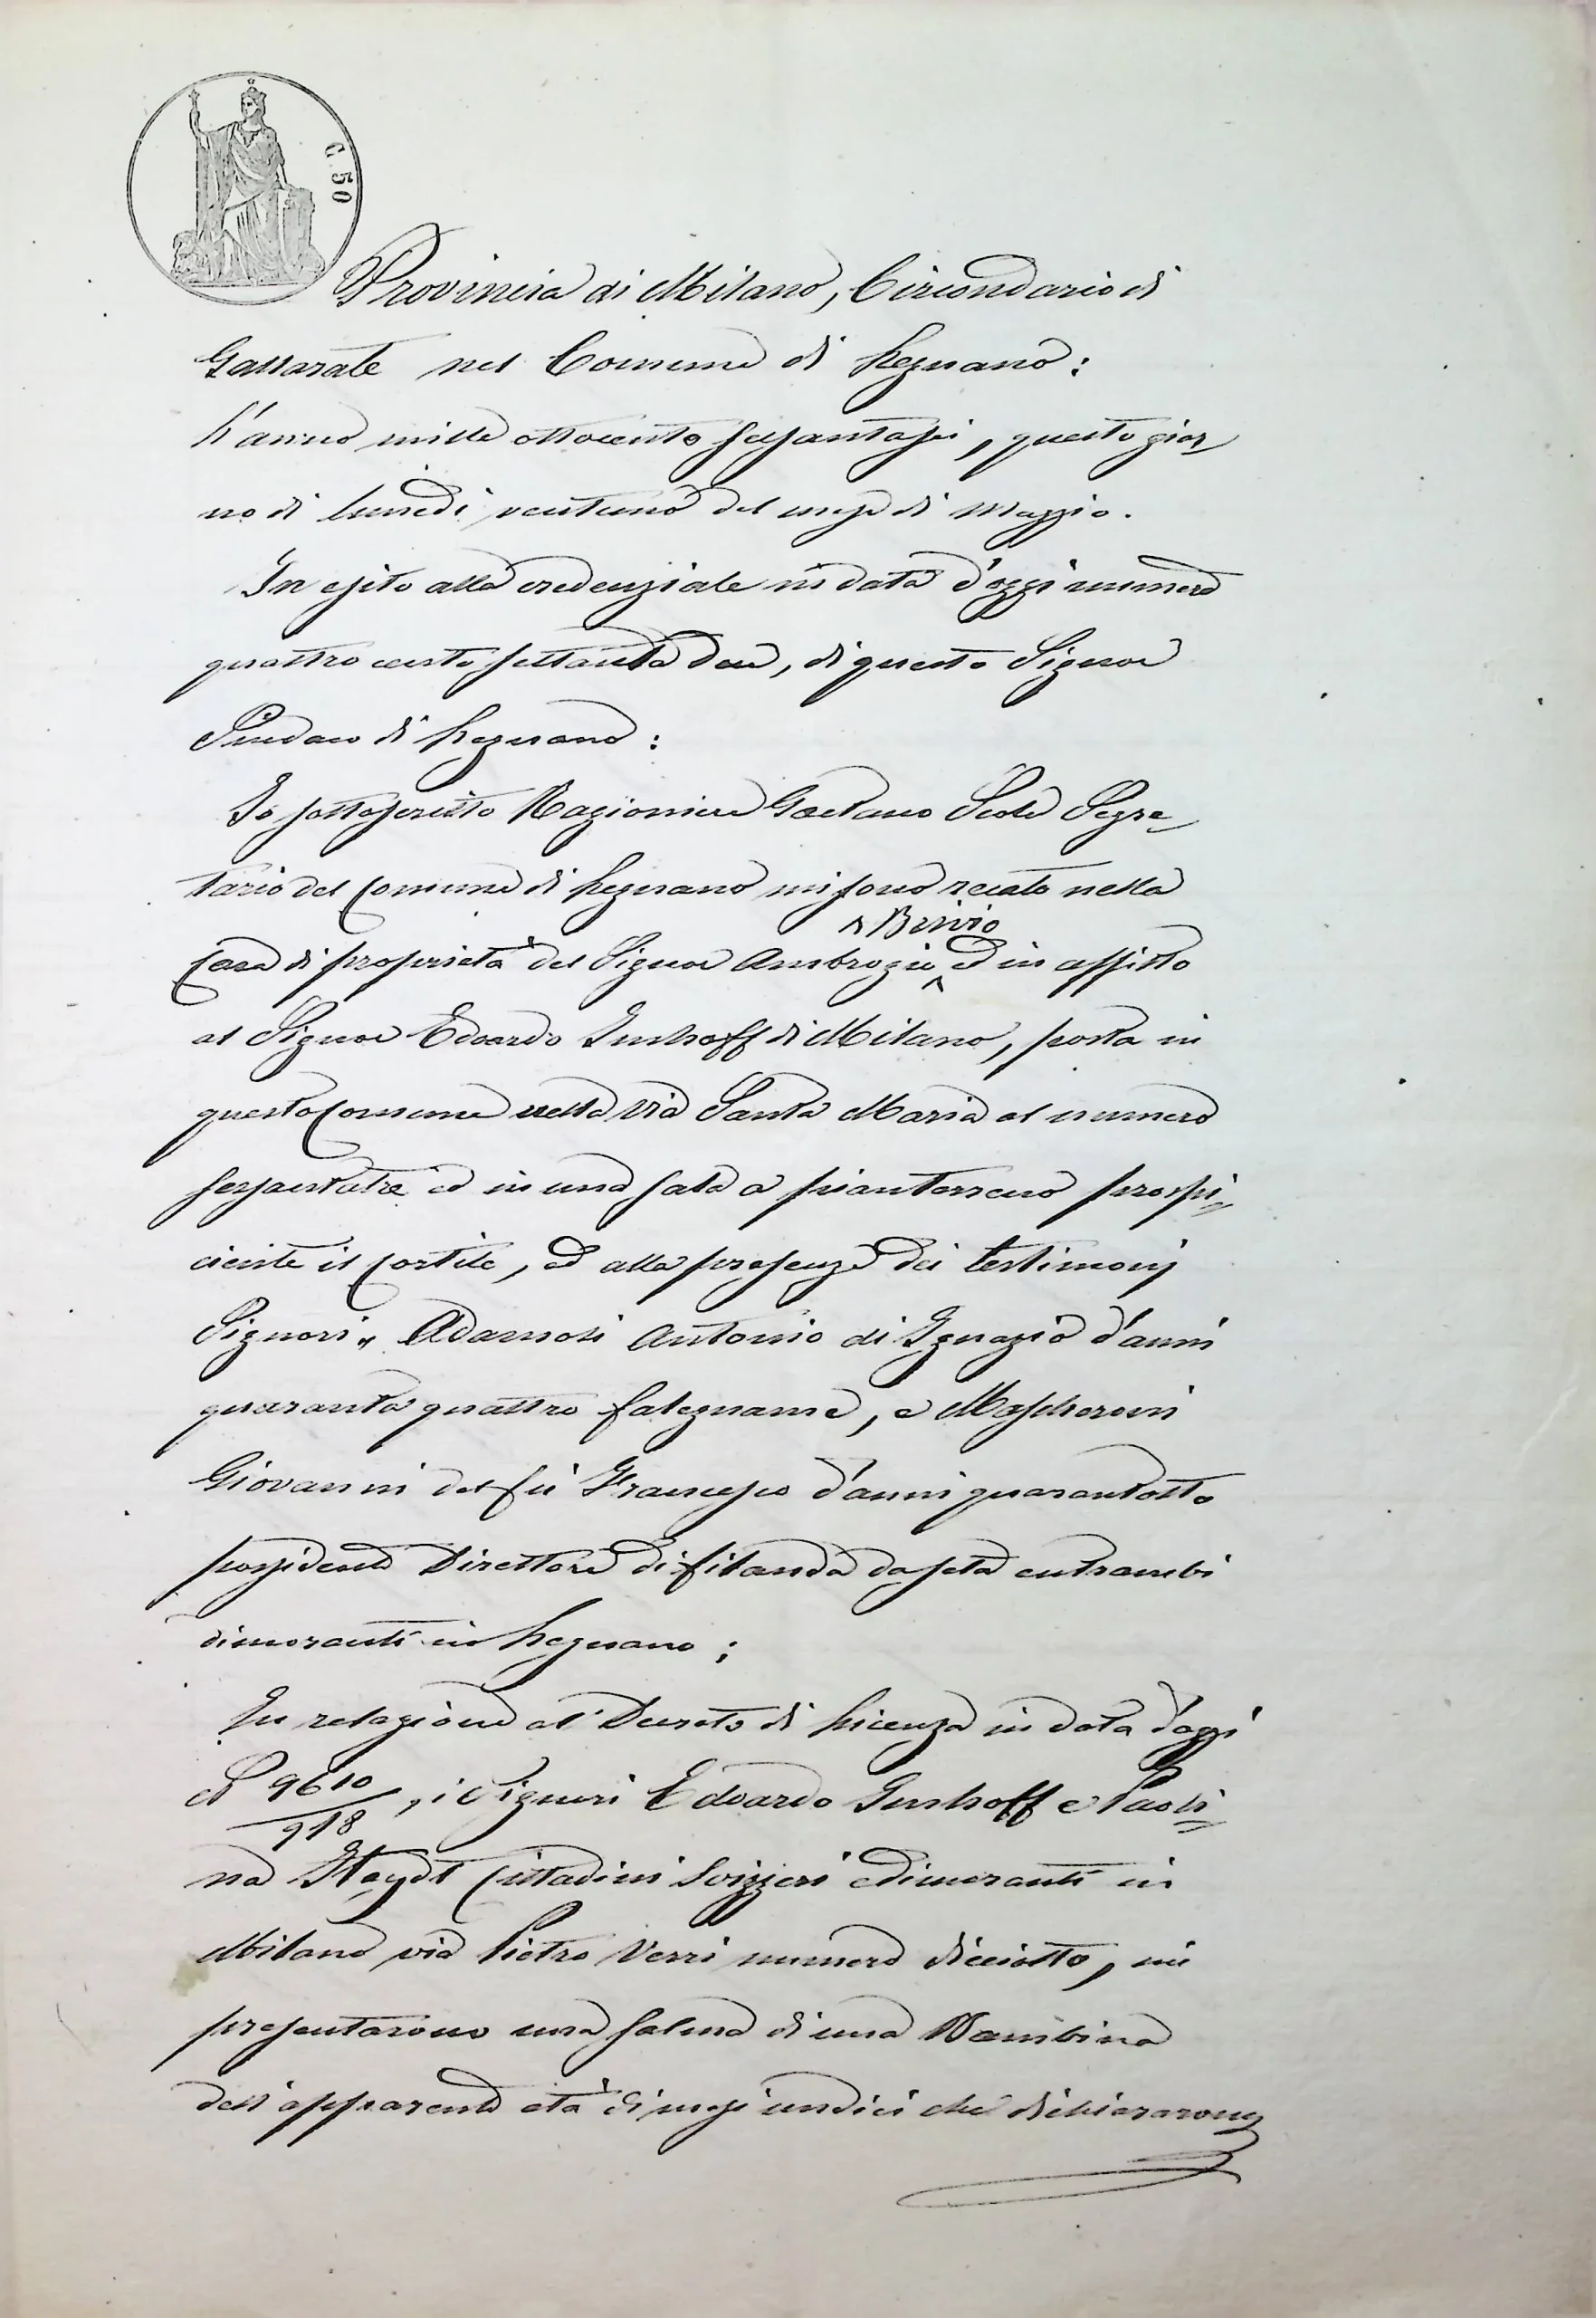 C. 50
Provincia di Milano, Circondario di
Gallarate nel Comune di Legnano:
L'anno mille ottocento sessantasei, questo gior-
no di lunedì ventuno del mese di Maggio.
In esito alla credenziale in data d'oggi numero
quattrocento settanta due, di questo Signor
Sindaco di Legnano:
Io sottoscritto Ragioniere Gaetano Segre-
tario del Comune di Legnano mi sono recato nella
Brivio
Casa di proprietà del Signor Ambrogio ed in affitto
al Signor Edoardo Imhoff di Milano, posta in
questo Comune nella via Santa Maria al numero
sessantatre ed in una sala a pianterreno prospi-
ciente il cortile, ed alla presenza dei testimonj
Signori Adamoli Antonio di Ignazio d'anni
quaranta quattro falegname, e Mascheroni
Giovanni del fù Francesco d'anni quarantotto
possidente Direttore di filanda da seta entrambi
dimoranti in Legnano;
In relazione al Decreto di Licenza in data d'oggi
N° 9610/918, i Signori Edoardo Imhoff e Paoli-
na Haydt Cittadini Svizzeri e dimoranti in
Milano via Pietro Verri numero dieciotto, mi
presentarono una salma di una Bambina
dell'apparente età di mesi undici che dichiararono